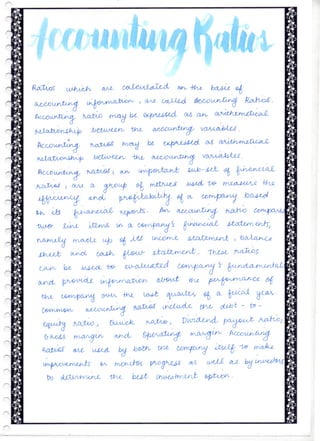 Accounting Ratios
Ratios which are calculated on the basis of
accounting information, are called Accounting Ratios.
Accounting ratio may be expressed as an arithmetical
relationship between the accounting variables.
Accounting ratios may be expressed as arithmetical
relationship between the accounting variables.
Accounting ratios, an important sub-set of financial
ratios, are a group of metrics used to measure the
efficiency and profitability of a company based
on its financial reports. An accounting ratio compares
two line items in a company's financial statements,
namely made up of its income statement, balance
sheet and cash flow statement. These ratios
can be used to evaluated company's fundamental
and provide information about the performance of
the company over the last quarter of a fiscal year
Common accounting ratios include the debt-to-
equity ratio, Quick ratio, Dividend payout ratio,
Gross margin and Operating margin Accounting
Ratios are used by both the company itself to make
improvements or monitor progress as well as by investors
to determine the best investment option.